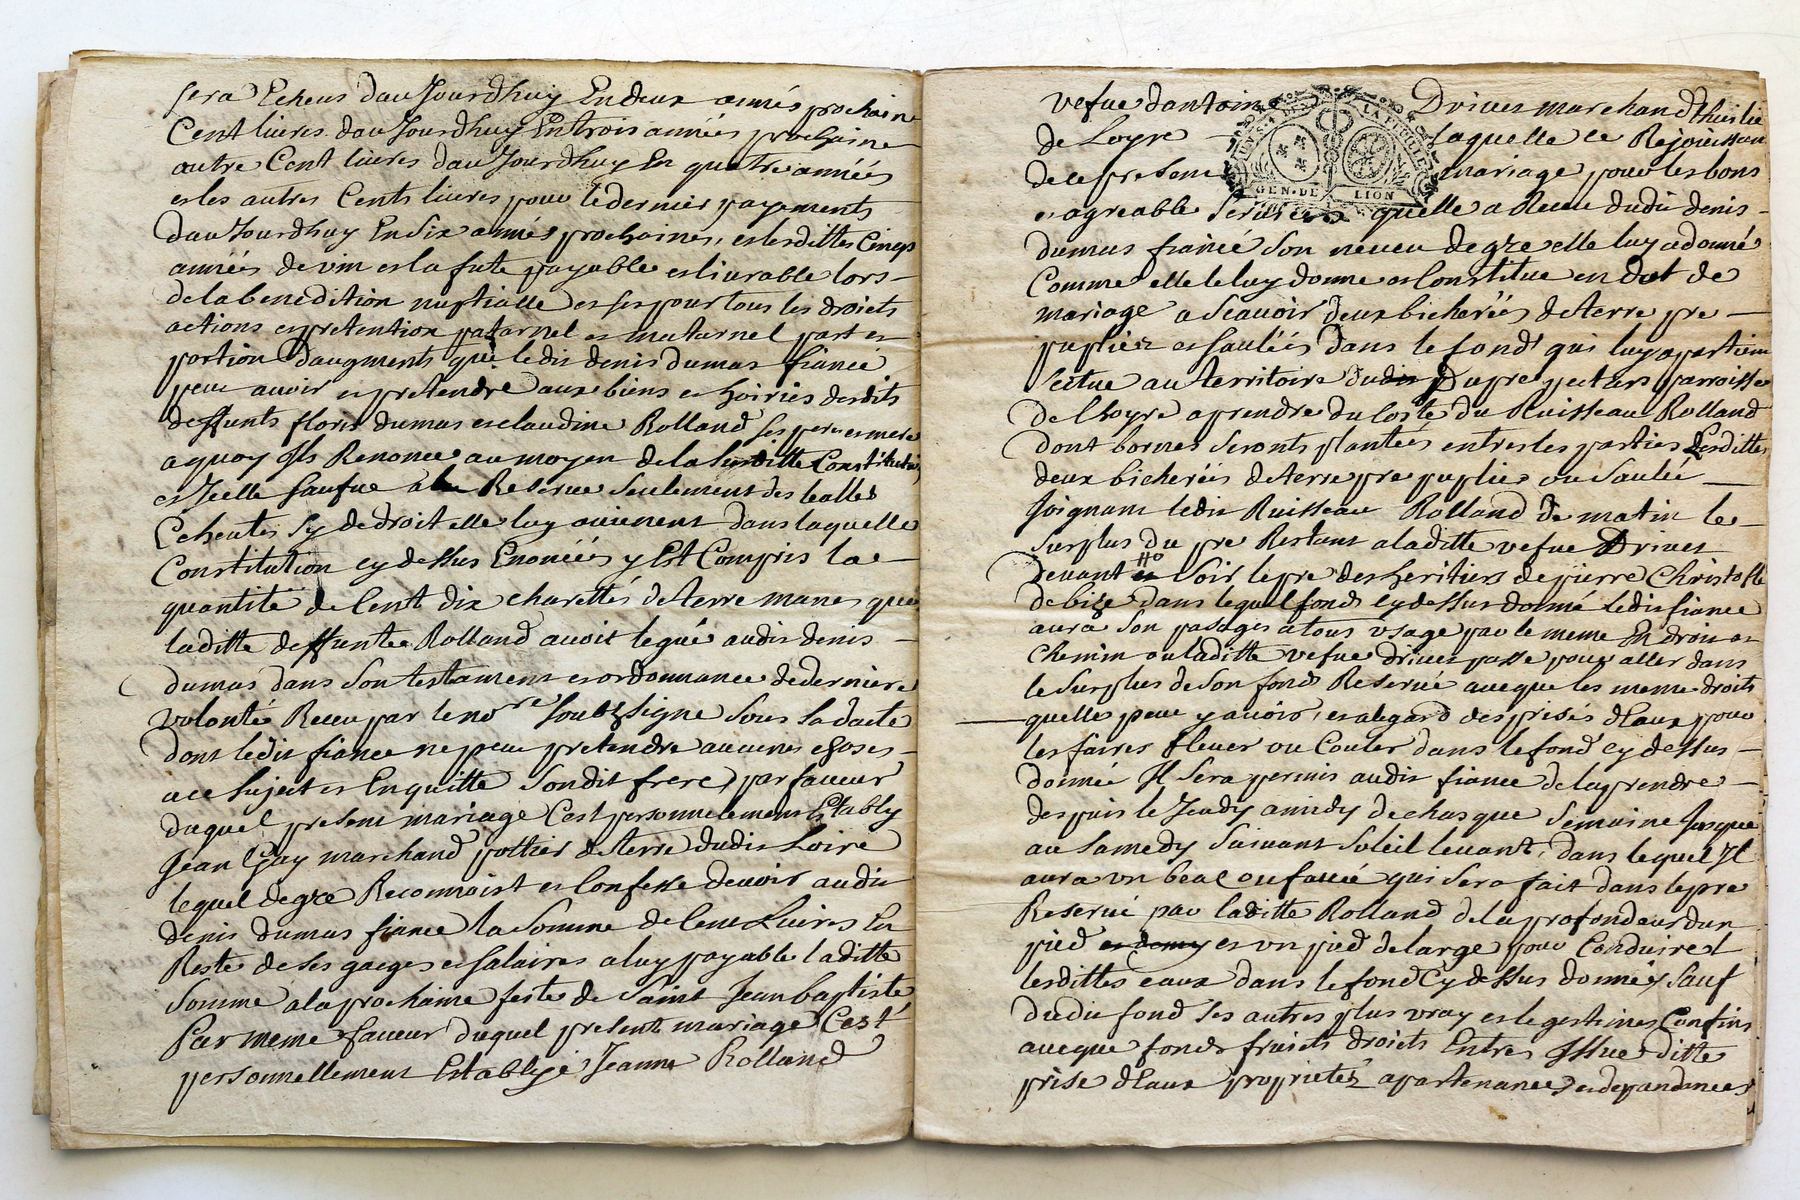 sera Echeus dau Jourdhuy En deux années prochaine
Cent liures dau Jourdhuy En trois années prochaine
autre Cent liures dau Jourdhuy En quatre années
et les autres Cents liures pour le dernier payements
dau Jourdhuy En Six années prochaines, et lesdittes Cinq
années de vin et la fute payable et liurable lors
de la benedition nuptialle et ses pour tous les droicts
actions et pretention patarnel et maturnel part et
portion daugments que ledit denis dumas fiancé
peut auoir et pretendre aux biens et hoiries desdits
deffunts floris dumas et claudine Rolland ses pere et mere
a quoy Ils Renonce au moyen de la susditte Constitution
et Jcelle saufue a la Reserue seulement des
Echeutes sy de droit elle luy auienent dans laquelle
Constitution cy dessus Enoncées y Est Compris la
quantité de Cent dix charettés de terre manes que
laditte deffunte Rolland auoit legué audit denis
dumas dans son testament et ordonnance de derniere
volonté Receu par le nore soubzsigné sous sa datte
dont ledit fiancé ne peut pretendre aucunes choses
a ce sujects et En quitte son dit frere, par faueur
duquel present mariage C'est personnelement Estably
Jean Gay marchand pottier de terre dudit Loire
lequel de gre Reconnoist et Confesse deuoir audit
denis dumas fiancé la Somme de Cent Liures En
Reste de ses gages et salaires a luy payable laditte
Somme a la prochaine feste de Saint Jean baptiste
Par meme faueur duquel present mariage C'est
personnellement Establye Jeanne Rolland
vefue dantoine Driuet marchand
de Loyre laquelle ce Rejouissant
de ce present mariage pour les bons
et agreable seruices quelle a Receu dudit denis
dumas fiancé son neueu de gre elle luy a donné
Comme elle le luy donne et Constitue en dot de
mariage a scauoir deux bicherées de terre pre
puplier et saulées dans le fond qui luy apartient
scitue au territoire dudit parroisse
de Lhoyre a prendre du Costé du Ruisseau Rolland
dont bornes seronts plantées entres les parties Lesdittes
deux bicherées de terre pre puplier ou saulée
Joignant ledit Ruisseau Rolland de matin le
surplus du pre Restant a laditte vefue Driuet
deuant soir le pre des heritiers de pierre Christofle
de bize dans lequel fonds cy dessus donné ledit fiance
aura son pasages a tous vsage par le meme Endroit et
chemin ou laditte vefue driuet passe pour aller dans
le surplus de son fond Reserué auecque les meme droits
quelle peut y auoir, et a legard des prises dEaux pour
les faires Eleuer ou Couler dans le fond cy dessus
donnée Il sera permis audit fiance de la prendre
despuis le Jeudy a midy de chasque semaine Jusque
au samedy suiuant soleil leuant, dans lequel Jl
aura vn ou qui sera fait dans le pre
Reserué par laditte Rolland de la profondeur dun
pied et demy et vn pied de large pour Conduire
lesdittes eaux dans le fond Cy dessus donnée, sauf
dudit fond ses autres plus vray et legestimes Confins
auecque fonds fruicts droicts Entres Jssue ditte
prise dEaux proprietéz apartenances et depandances
GEN·DE LION